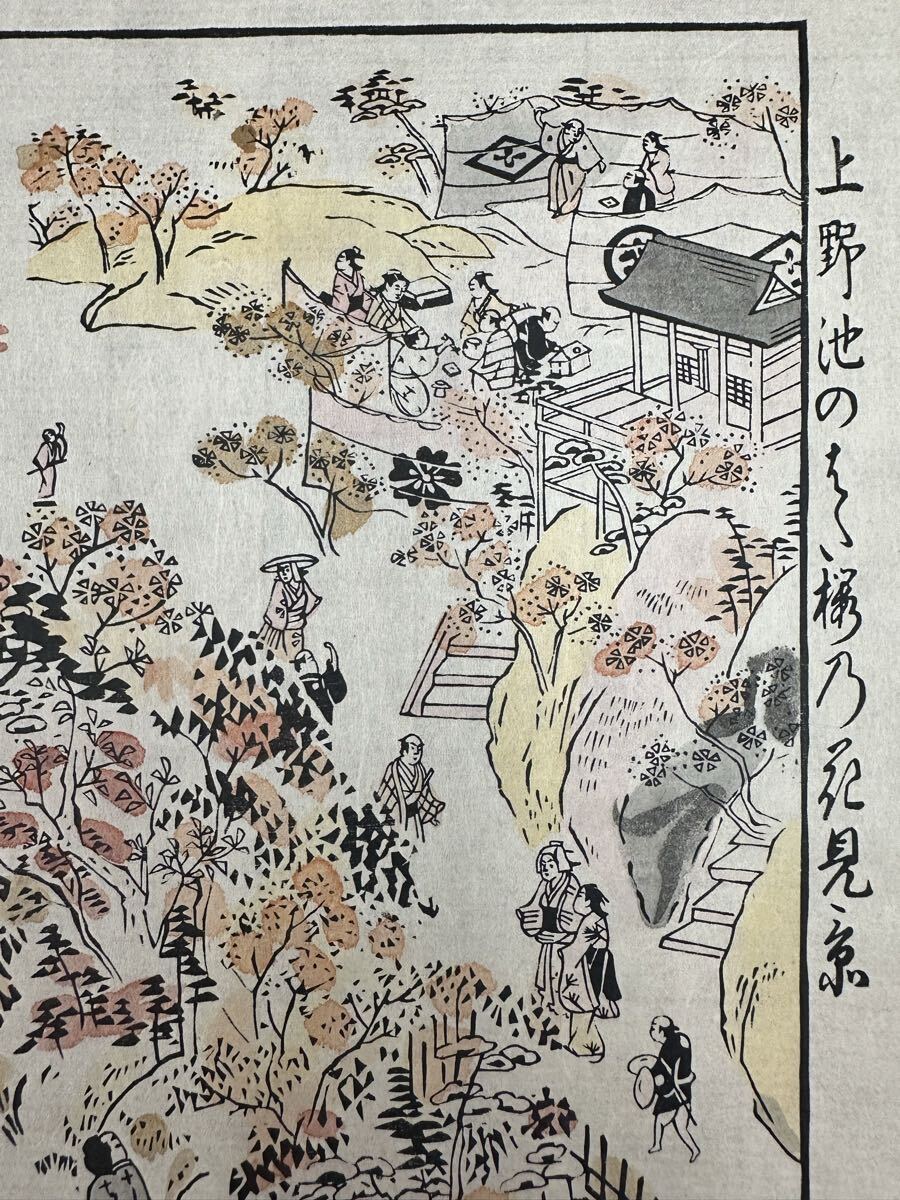 上野池のはた櫻乃花見之景